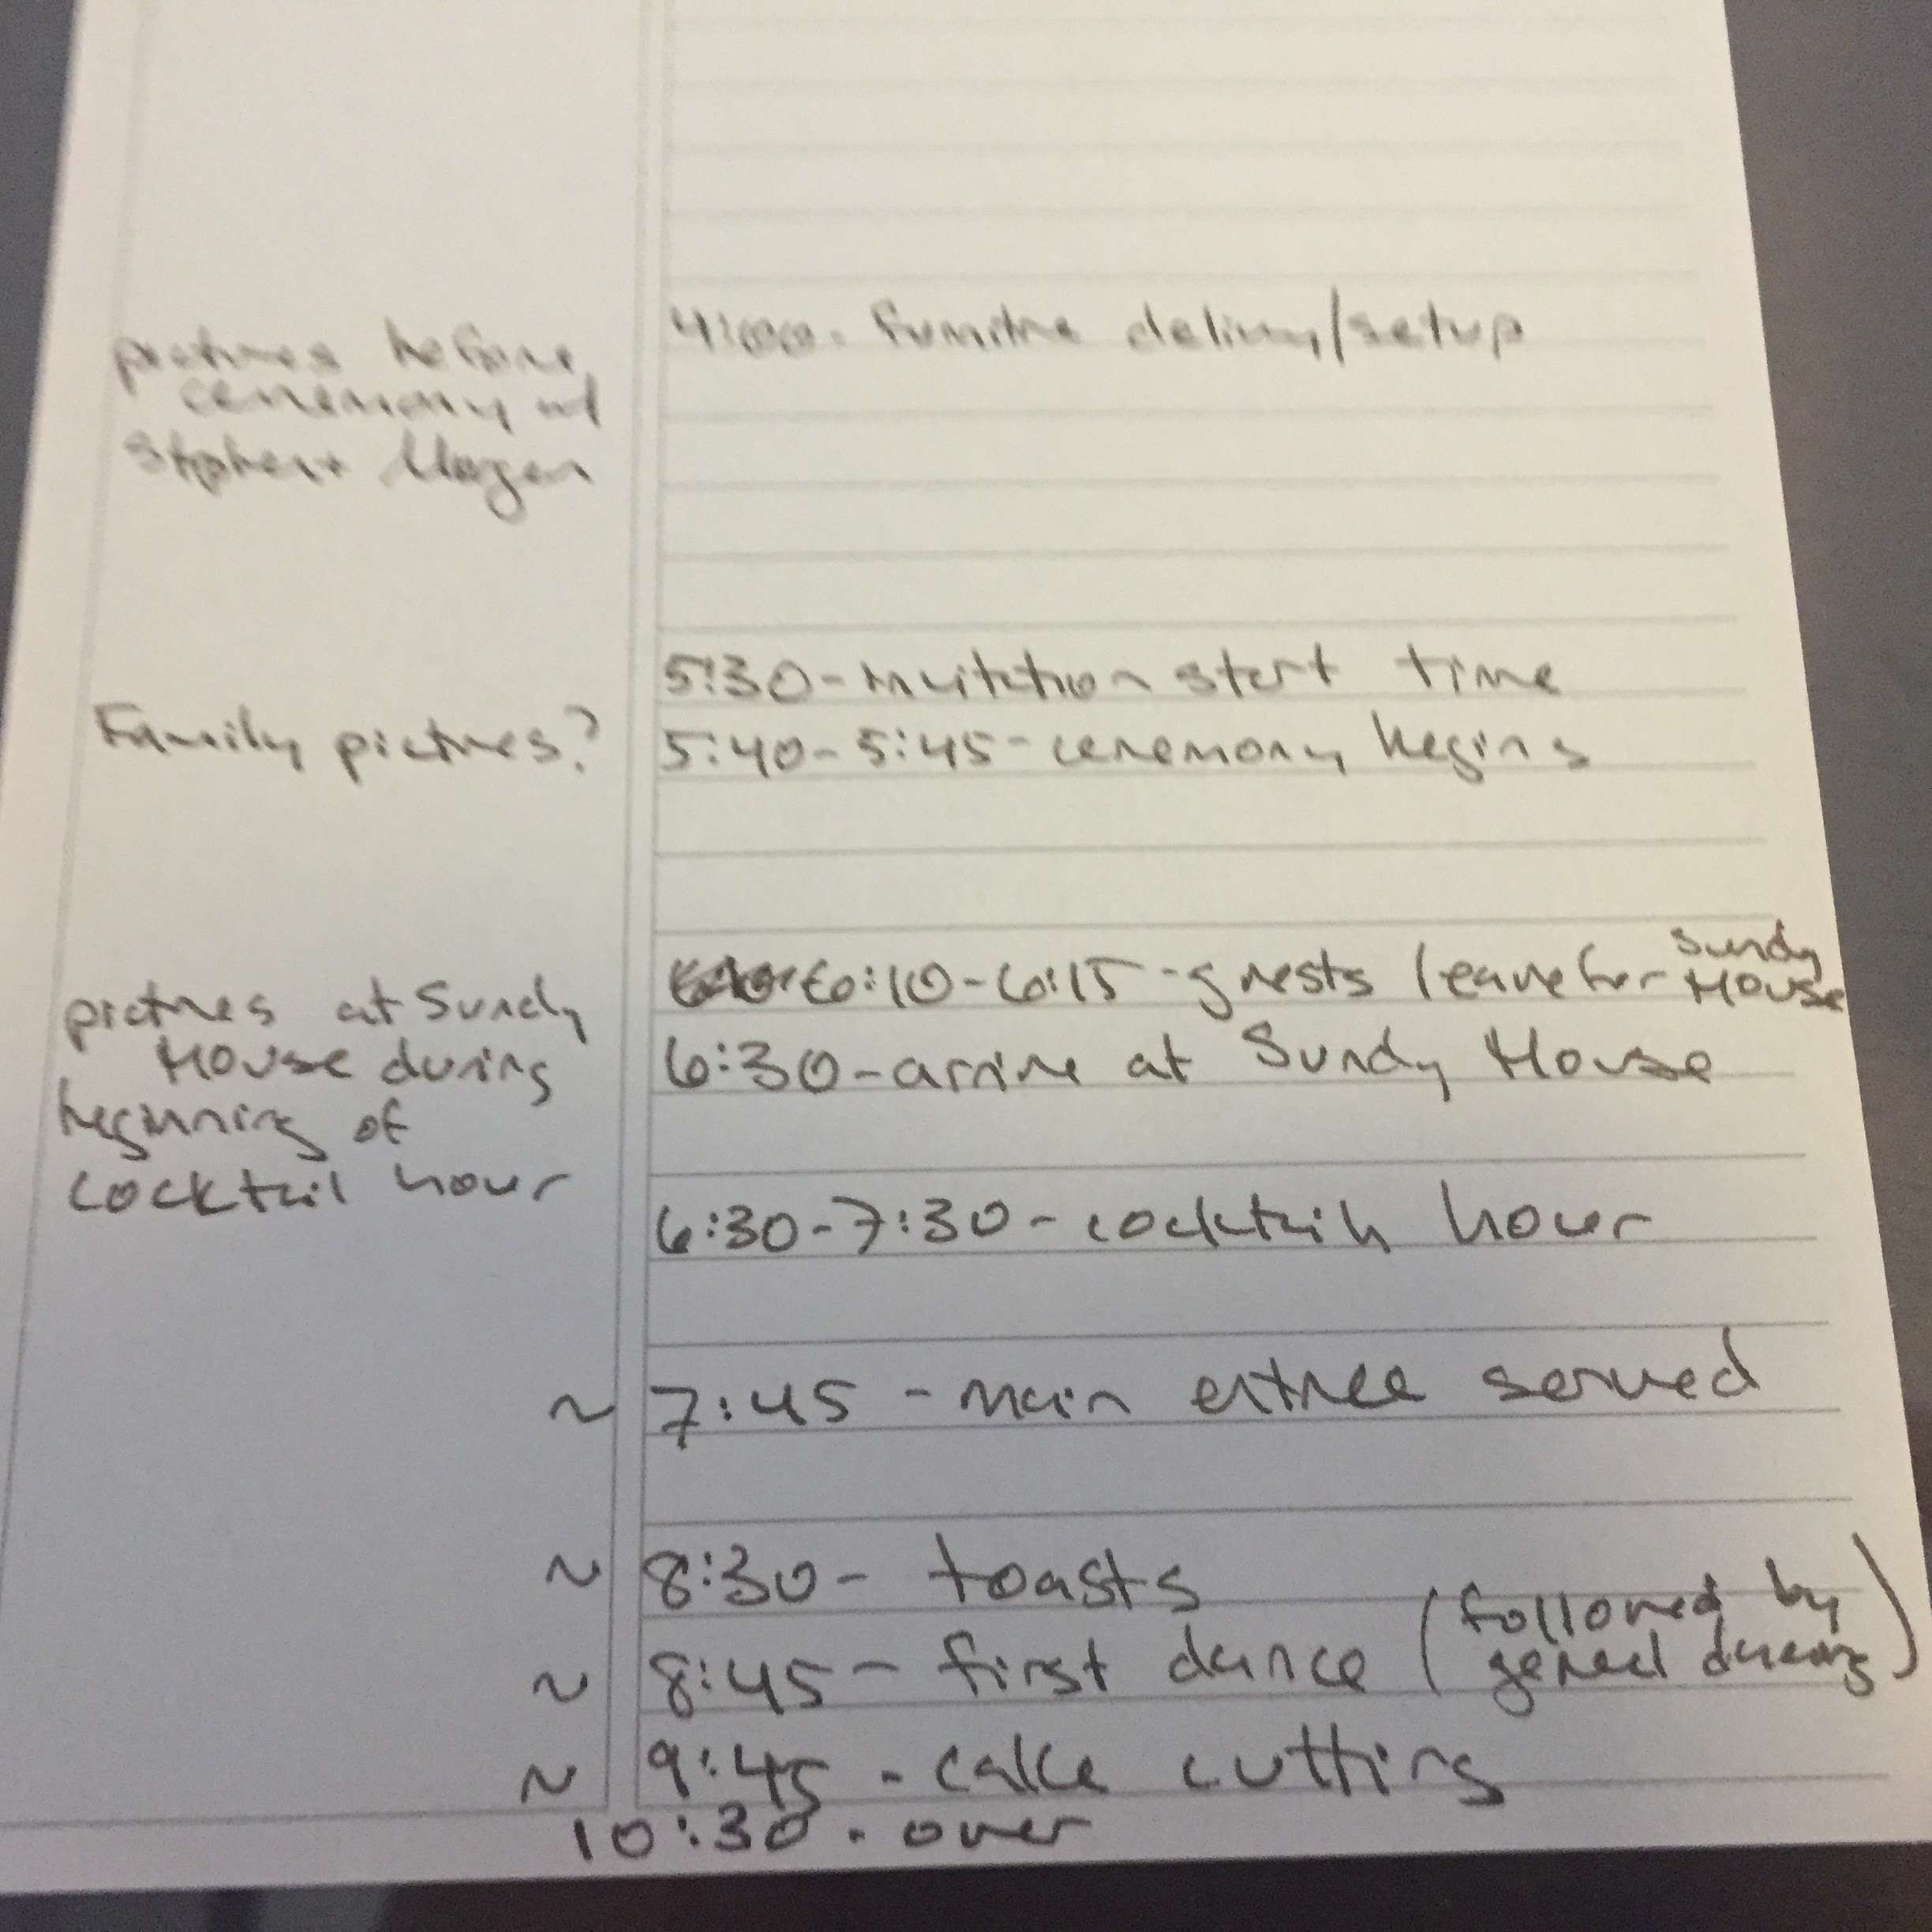 pictures before
ceremony w/
Stephen + Megan
4:00 - furniture delivery/setup
5:30 - invitation start time
Family pictures?
5:40 - 5:45 - ceremony begins
6:10 - 6:15 - guests leave for Sundy House
pictures at Sundy
House during
beginning of
cocktail hour
6:30 - arrive at Sundy House
6:30 - 7:30 - cocktail hour
~ 7:45 - main entree served
~ 8:30 - toasts
~ 8:45 - first dance (followed by general dancing)
~ 9:45 - cake cutting
10:30 - over